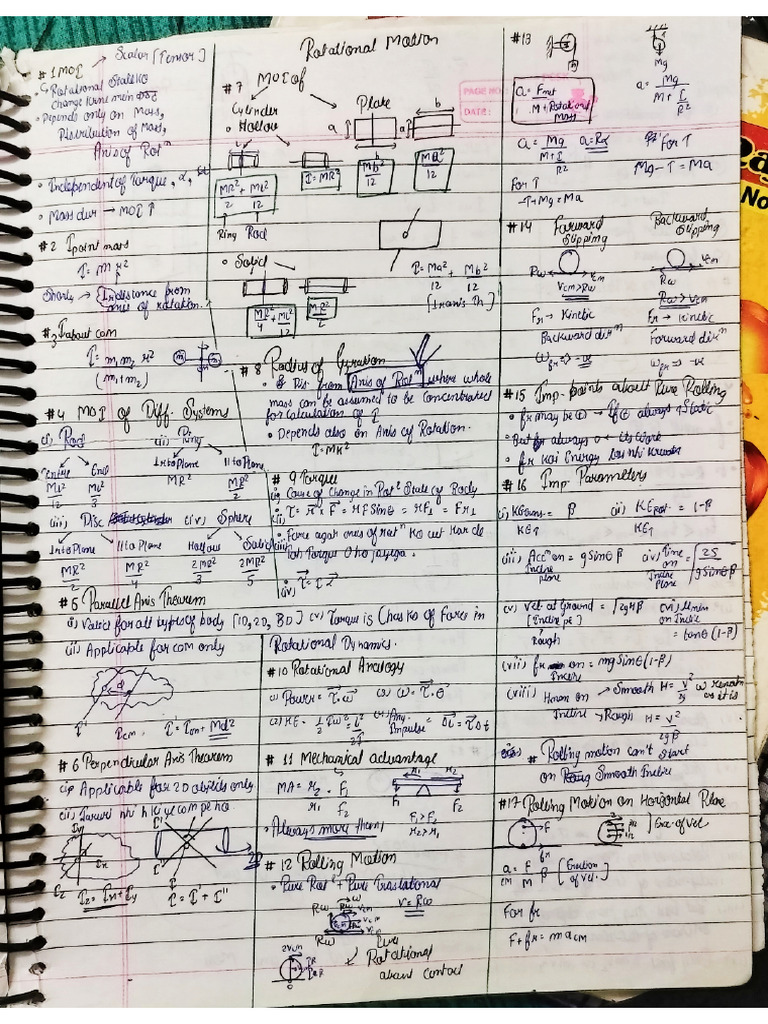 Rotational Motion
#1 MOI → Scalar [Tensor]
↳ Rotational
change karne mein
• Depends only on Mass,
Distribution of Mass,
Axis of Rotⁿ
• Independent of Torque, α,
• Mass dur → MOI ↑
#2 I point mass
I = m r²
Shortly → I r distance from
axis of rotation.
#3 I about com
I = m₁ m₂ r²
(m₁+m₂)
#4 MOI of Diff. Systems
(i) Rod
(ii) Ring
Centre
End
Ml²/12
Ml²/3
⊥r to Plane
MR²
|| to Plane
MR²/2
(iii) Disc
(iv) Sphere
⊥r to Plane
|| to Plane
Hollow
Solid
MR²/2
MR²/4
2MR²/3
2MR²/5
#5 Parallel Axis Theorem
(i) Valid for all types of body [1D, 2D, 3D]
(ii) Applicable for com only
d
I'
I = Icm + Md²
#6 Perpendicular Axis Theorem
(i) Applicable for 2D objects only
(ii) Jaruri nhi h ki
Iy
Ix
Iz
Iz = Ix + Iy
I'
I''
I
2D
I = I' + I''
#7 MOI of
Cylinder
• Hollow
MR²/2 + ML²/12
I = MR²
Ring Rod
• Solid
MR²/4 + ML²/12
MR²/2
Plate
a
b
a
Mb²/12
Ma²/12
I = Ma²/12 + Mb²/12
#8 Radius of Gyration
• Dis. from Axis of Rotⁿ where whole
mass can be assumed to be concentrated
for calculation of I
• Depends also on Axis of Rotation.
I = MK²
#9 Torque
(i) Cause of Change in Rotⁿ State of Body
(ii) τ = r × F = rF sinθ = rF⊥ = F r⊥
(iii) Force agar axes of rotⁿ ko cut kar de
toh Torque 0 ho jayega.
(iv) τ = I α
(v) Torque is of Force in
Rotational Dynamics.
#10 Rotational Analogy
(i) Power = τ.ω
(ii) ω = τ.θ
(iii) KE = ½ Iω² = L²/2I
(iv) Ang. Impulse = ΔL = τΔt
#11 Mechanical advantage
MA = r₂/r₁ = F₁/F₂
r₁
r₂
F₁
F₂
F₁ > F₂
r₂ > r₁
• Always more than 1
#12 Rolling Motion
• Pure Rotⁿ + Pure Translational
v = Rω
Rω
Vcm
Pure
Rotational
about contact
2Vcm
#13
Mg
a = Fnet/M + Rotational Mass
a = Mg/M + I/R²
a = Mg/M + I/R²
a = Rα
For T
Mg − T = Ma
For T
−T + Mg = Ma
#14 Forward Slipping
Backward Slipping
Rω
Vcm
Vcm > Rω
Rω
Vcm
Rω > Vcm
Fr → Kinetic
Fr → Kinetic
Backward dirⁿ
Forward dirⁿ
#15 Imp. points about Pure Rolling
• fr may be
always Static
• But fr always 0 ← its work
• fr koi Energy loss nhi
#16 Imp Parameters
(i) KEtrans = β
KET
(ii) KErot = 1−β
KET
(iii) Accⁿ on = g sinθ β
Incline
plane
(iv) Time on = √2S/g sinθ β
Incline
plane
(v) Vel. at Ground = √2gHβ
[Incline pe]
Rough
(vi) μmin
on Incline
= tanθ (1−β)
(vii) fr on = mg sinθ (1−β)
Incline
(viii) Hmax on
Incline
→ Smooth H = V²/2g
→ Rough H = V²/2gβ
# Rolling motion can't start
on Smooth Incline
#17 Rolling Motion on Horizontal Plane
F
fr
a cm = F/M β [ of Vel.]
For fr
F + fr = macm
PAGE NO.
DATE:
No